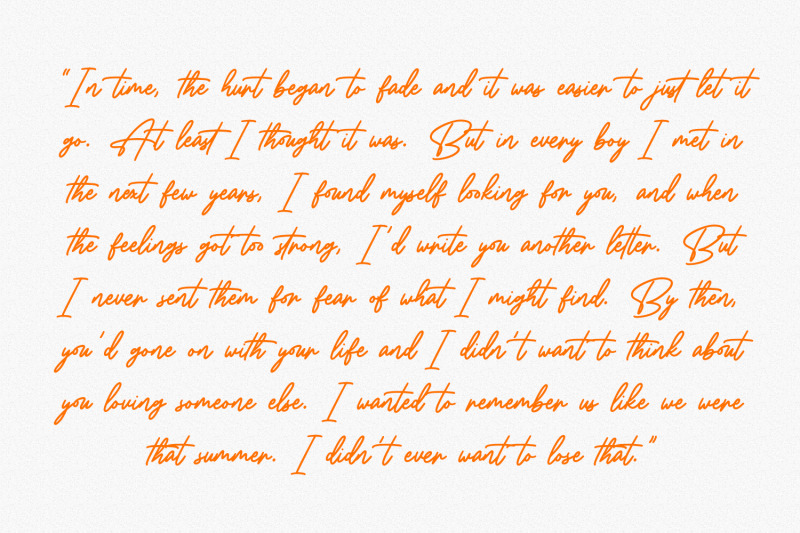 "In time, the hurt began to fade and it was easier to just let it
go. At least I thought it was. But in every boy I met in
the next few years, I found myself looking for you, and when
the feelings got too strong, I'd write you another letter. But
I never sent them for fear of what I might find. By then,
you'd gone on with your life and I didn't want to think about
you loving someone else. I wanted to remember us like we were
that summer. I didn't ever want to lose that."